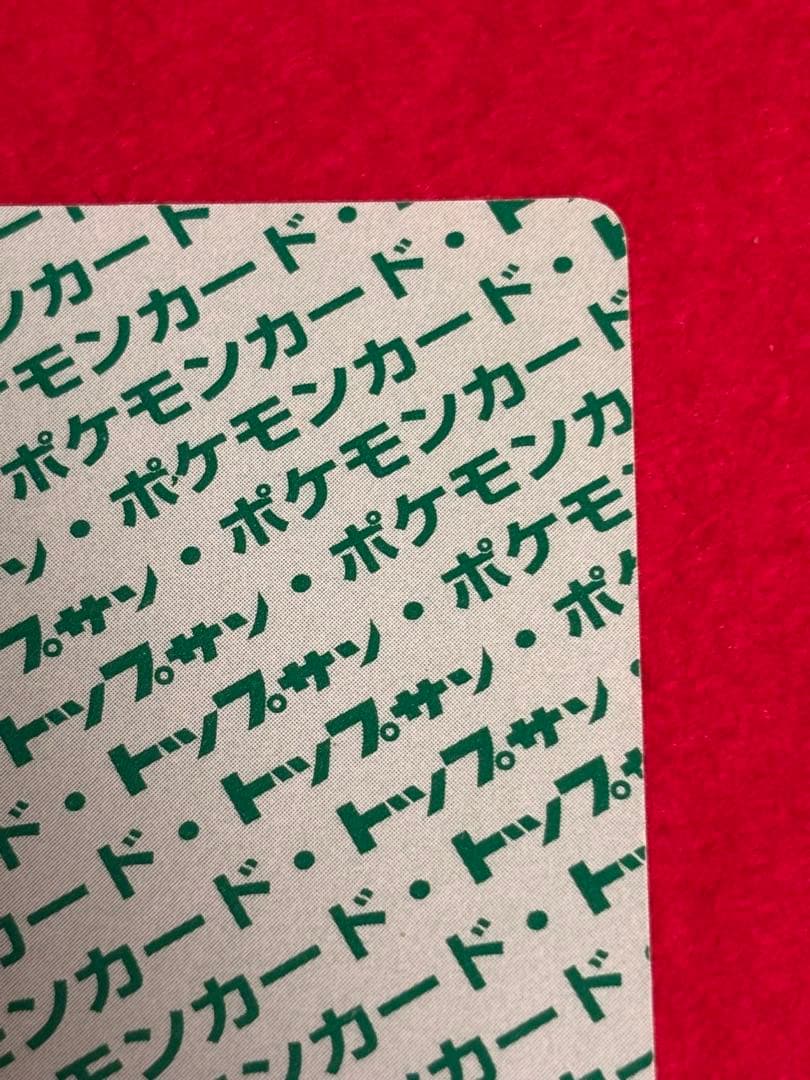 ンカード
モンカード・
ポケモンカード・ト
ン・ポケモンカード・
プサン・ポケモンカード
トップサン・ポケモンカ
ド・トップサン・ポケモ
カード・トップサン・ポ
ンカード・トップサン・
モンカード・トップ
ンカード・トッ
カード